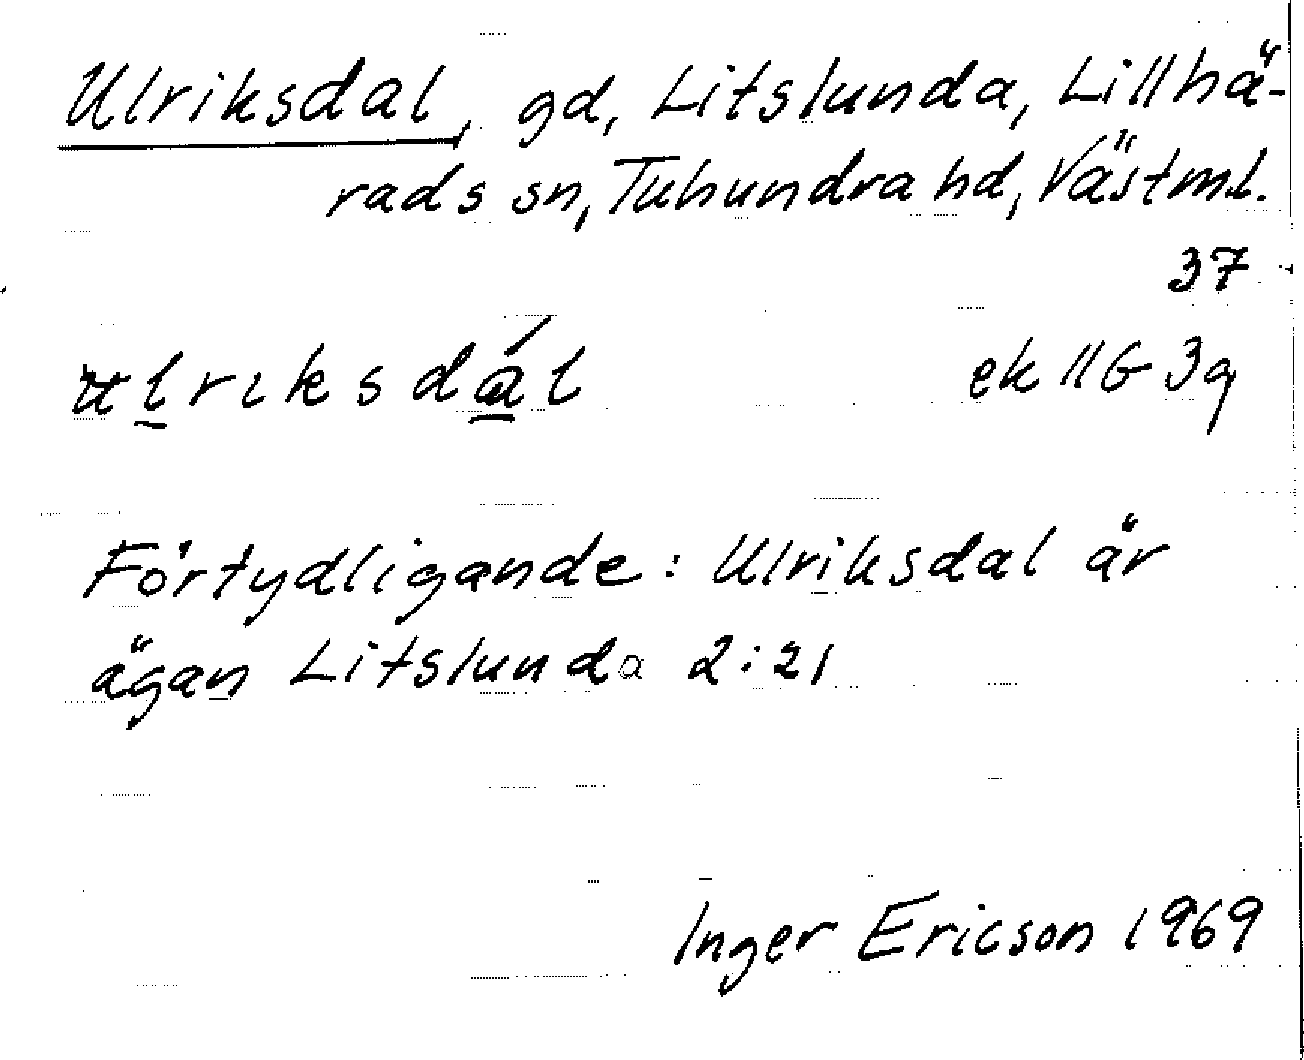 Ulriksdal, gd, Litslunda, Lillhä-
rads sn, Tuhundra hd, Västml.
37
ulrıksdál ek 11G 3g
Förtydligande: Ulriksdal är
ägan Litslunda 2:21
Inger Ericson 1969